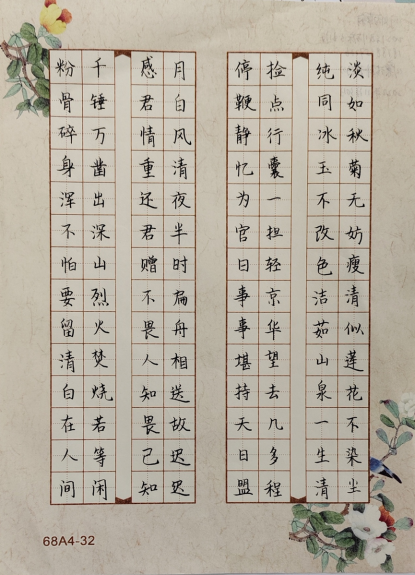 淡如秋菊无妨瘦清似莲花不染尘
纯同冰玉不改色洁茹山泉一生清
捡点行囊一担轻京华望去几多程
停鞭静忆为官日事事堪持天日盟
月白风清夜半时扁舟相送故迟迟
感君情重还君赠不畏人知畏己知
千锤万凿出深山烈火焚烧若等闲
粉骨碎身浑不怕要留清白在人间
68A4-32